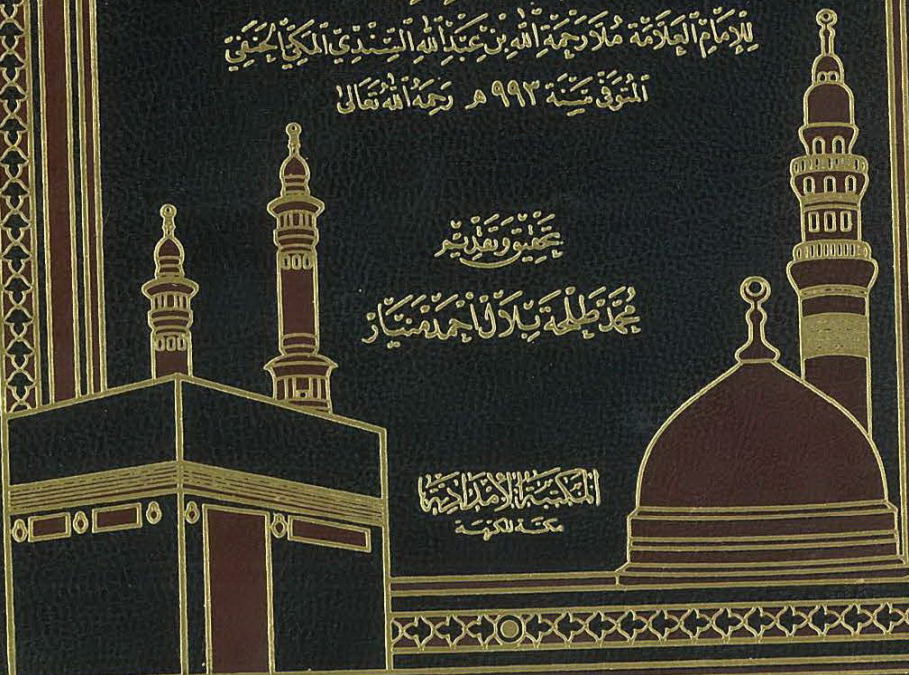 لِلإمَامِ العَلَّامَة مُلَّا رَحمَة الله بْن عَبْدِ الله السِّنْدِيّ المَكِّيّ الحَنَفِيّ
المُتَوَفَّى سَنَة ٩٩٣ هـ رَحِمَهُ اللهُ تَعَالَى
تَحقِيق وَتَقدِيم
مُحَمَّد طَلحَة بِلَال أَحمَد مِنيَار
المَكتَبَة الإمدَادِيَّة
مكَّة المكرمَة